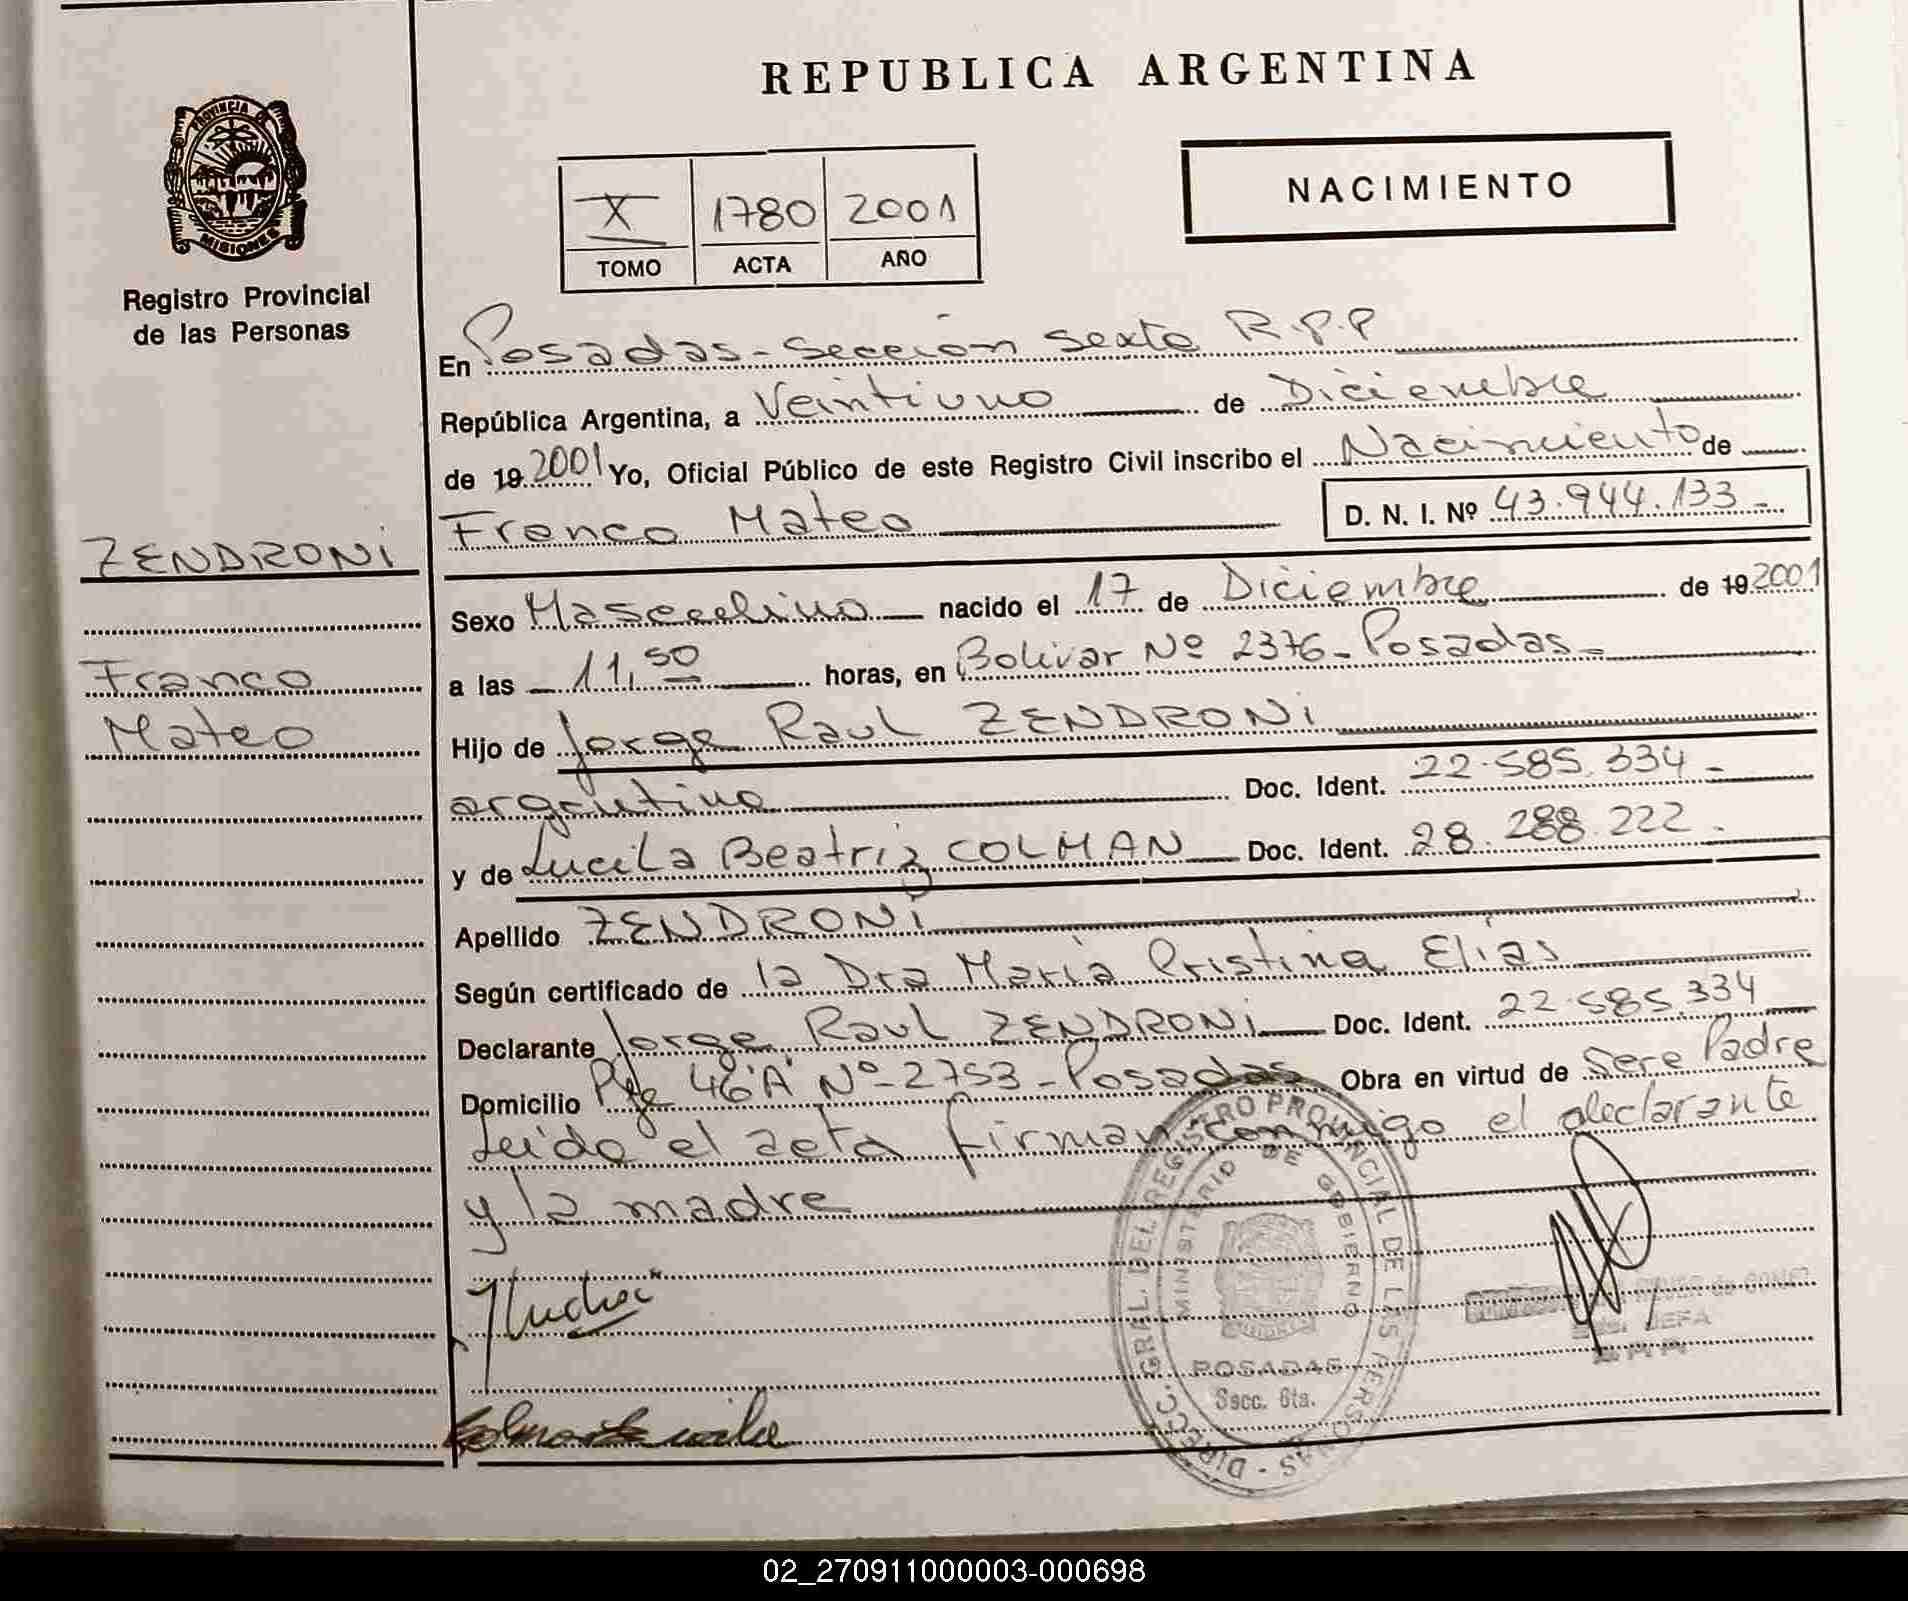 REPUBLICA ARGENTINA
PROVINCIA DE MISIONES
Registro Provincial
de las Personas
X 1780 2001
TOMO ACTA AÑO
NACIMIENTO
En Posadas - Sección Sexta R.P.P
República Argentina, a Veintiuno de Diciembre
de 19 2001 Yo, Oficial Público de este Registro Civil inscribo el Nacimiento de
Franco Mateo D. N. I. Nº 43.944.133 -
ZENDRONI
Franco
Mateo
Sexo Masculino nacido el 17 de Diciembre de 19 2001
a las 11,50 horas, en Bolivar Nº 2376 - Posadas -
Hijo de Jorge Raul ZENDRONI
argentino Doc. Ident. 22.585.334 -
y de Lucila Beatriz COLMAN Doc. Ident. 28.288.222 -
Apellido ZENDRONI
Según certificado de la Dra María Cristina Elías
Declarante Jorge Raul ZENDRONI Doc. Ident. 22.585.334
Domicilio Pje 46"A" Nº 2753 - Posadas Obra en virtud de Sere Padre
Leido el acta firman conmigo el declarante
y la madre
DIRECC. GRAL. DEL REGISTRO PROVINCIAL DE LAS PERSONAS
MINISTERIO DE GOBIERNO
POSADAS
Secc. 6ta.
JEFA
02_270911000003-000698